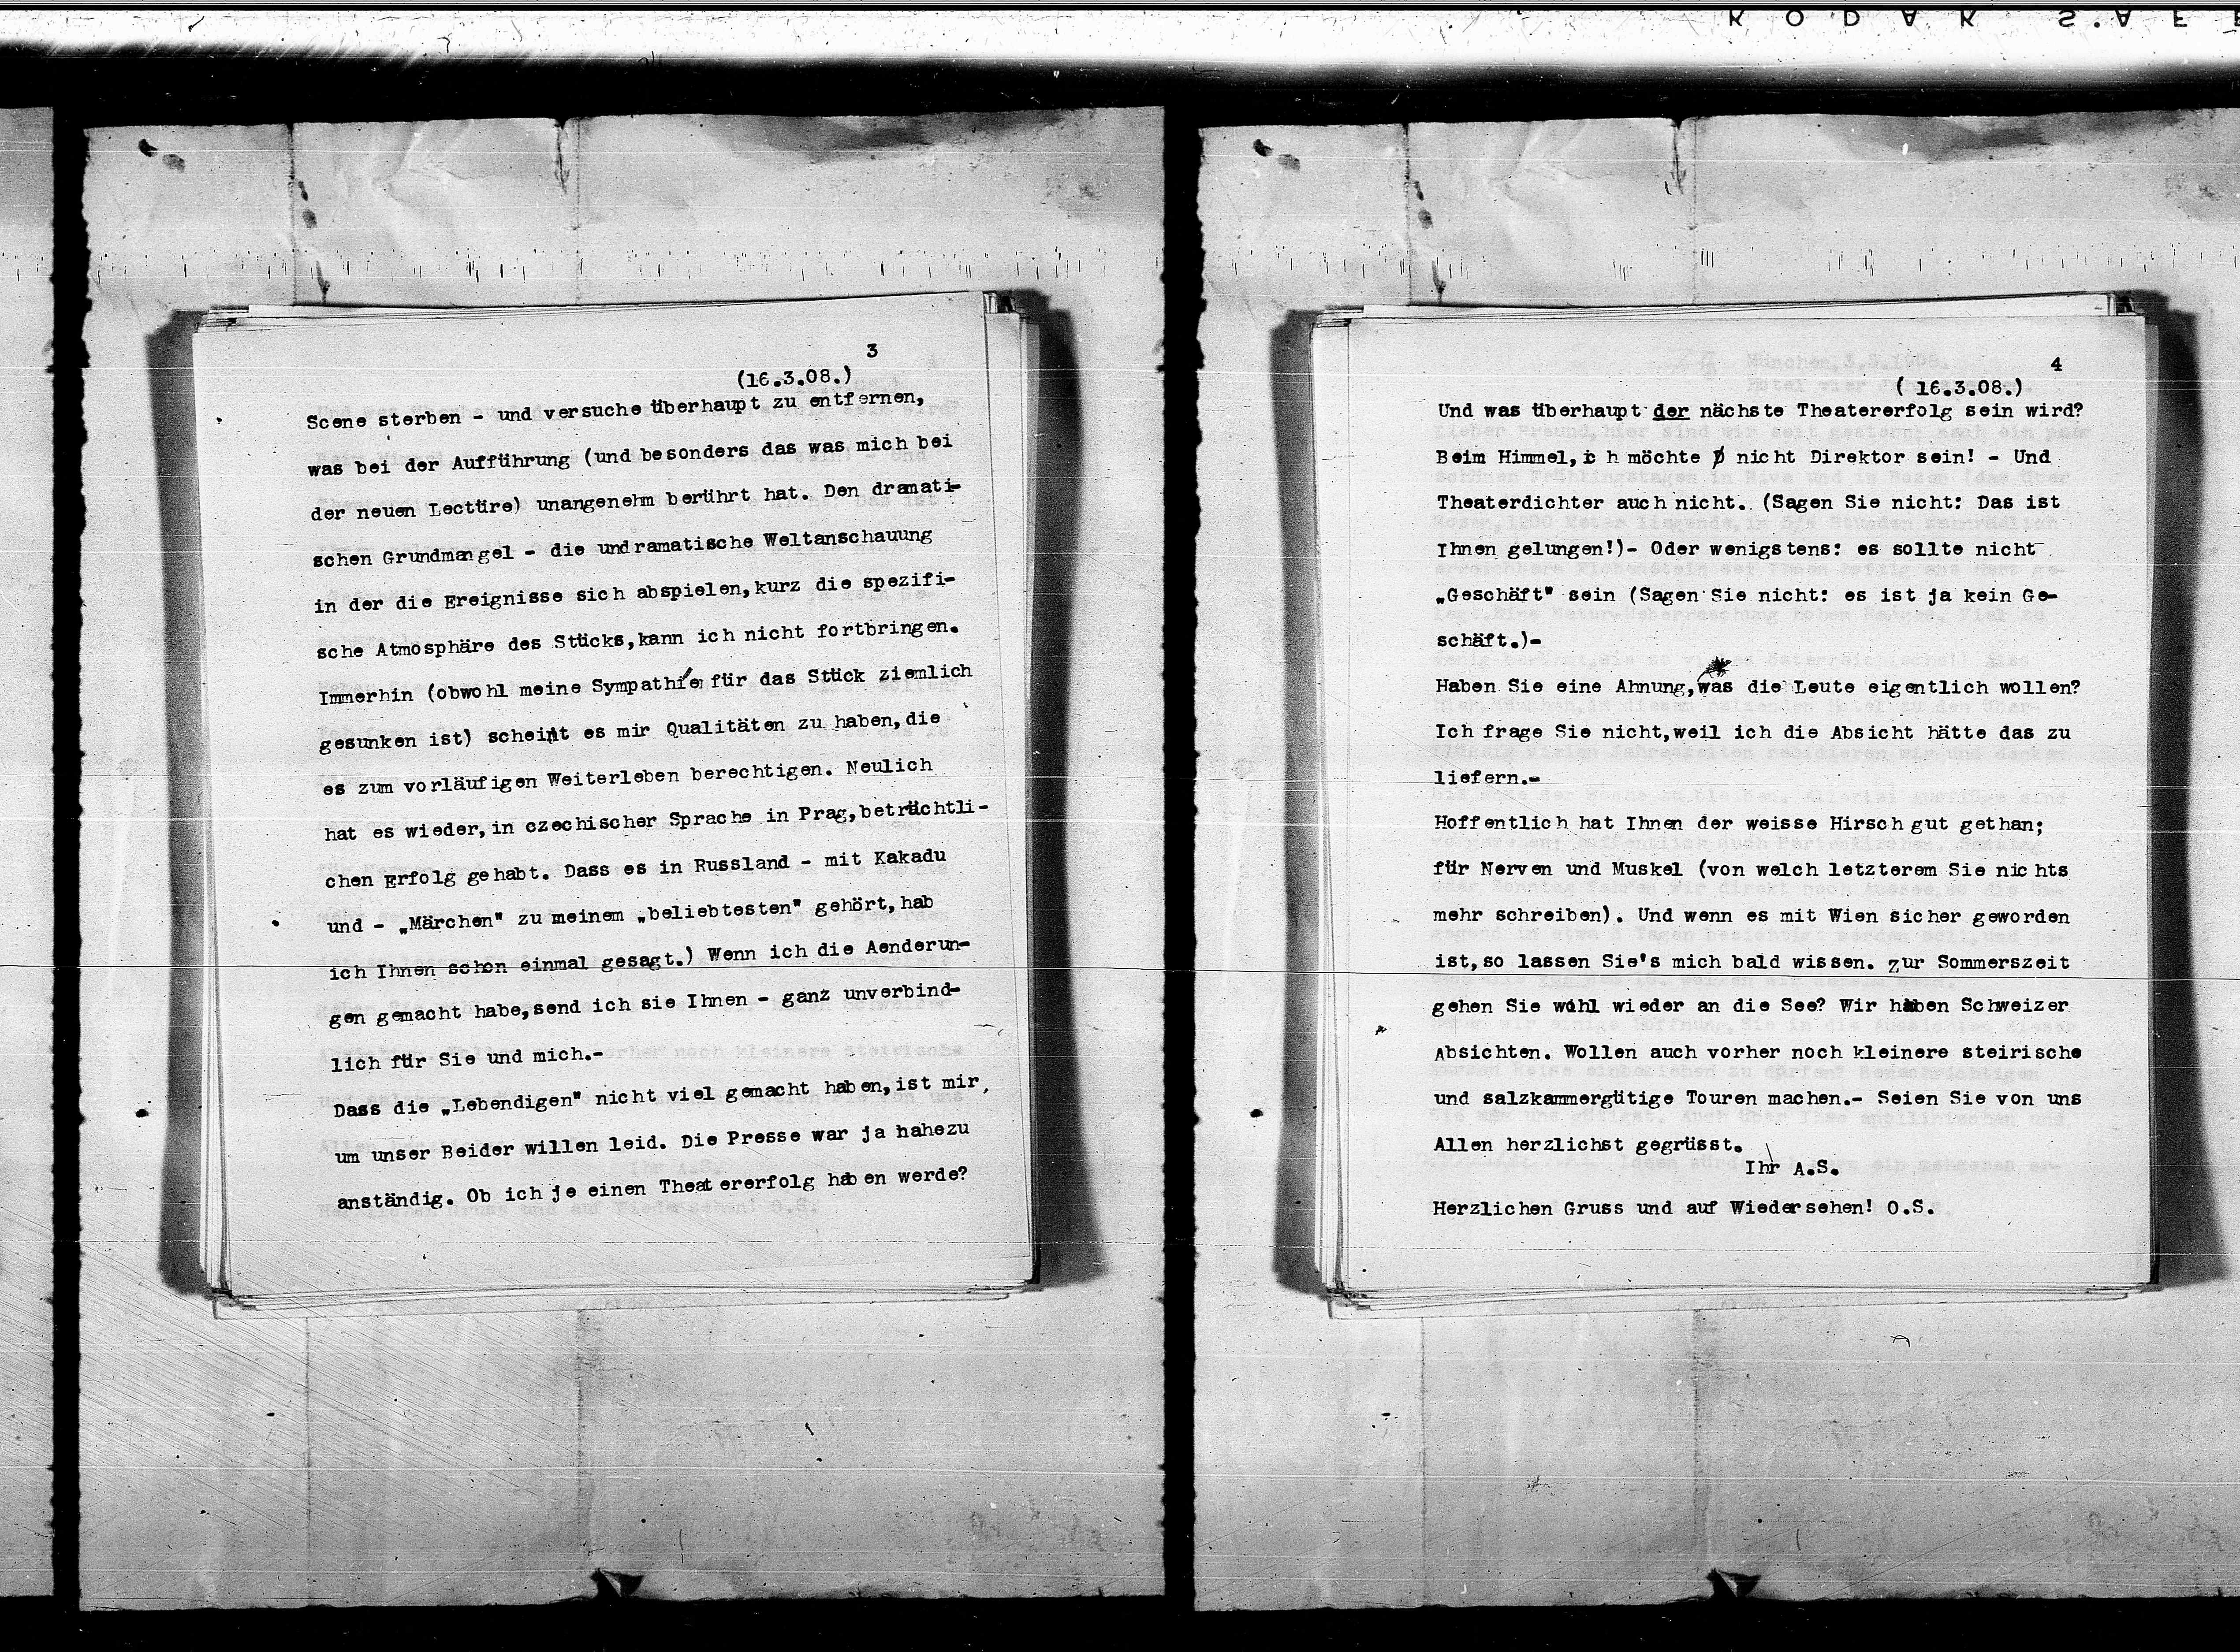 KODAK SAFE
3
(16.3.08.)
Scene sterben - und versuche überhaupt zu entfernen,
was bei der Aufführung (und besonders das was mich bei
der neuen Lectüre) unangenehm berührt hat. Den dramati-
schen Grundmangel - die undramatische Weltanschauung
in der die Ereignisse sich abspielen,kurz die spezifi-
sche Atmosphäre des Stücks,kann ich nicht fortbringen.
Immerhin (obwohl meine Sympathie für das Stück ziemlich
gesunken ist) scheint es mir Qualitäten zu haben,die
es zum vorläufigen Weiterleben berechtigen. Neulich
hat es wieder,in czechischer Sprache in Prag,beträchtli-
chen Erfolg gehabt. Dass es in Russland - mit Kakadu
und - „Märchen" zu meinem „beliebtesten" gehört,hab
ich Ihnen schon einmal gesagt.) Wenn ich die Aenderun-
gen gemacht habe,send ich sie Ihnen - ganz unverbind-
lich für Sie und mich.-
Dass die „Lebendigen" nicht viel gemacht haben,ist mir,
um unser Beider willen leid. Die Presse war ja nahezu
anständig. Ob ich je einen Theatererfolg haben werde?
4
( 16.3.08.)
Und was überhaupt der nächste Theatererfolg sein wird?
Beim Himmel,ich möchte nicht Direktor sein! - Und
Theaterdichter auch nicht. (Sagen Sie nicht: Das ist
Ihnen gelungen!)- Oder wenigstens: es sollte nicht
„Geschäft" sein (Sagen Sie nicht: es ist ja kein Ge-
schäft.)-
Haben Sie eine Ahnung,was die Leute eigentlich wollen?
Ich frage Sie nicht,weil ich die Absicht hätte das zu
liefern.-
Hoffentlich hat Ihnen der weisse Hirsch gut gethan;
für Nerven und Muskel (von welch letzterem Sie nichts
mehr schreiben). Und wenn es mit Wien sicher geworden
ist,so lassen Sie's mich bald wissen. zur Sommerszeit
gehen Sie wohl wieder an die See? Wir haben Schweizer
Absichten. Wollen auch vorher noch kleinere steirische
und salzkammergütige Touren machen.- Seien Sie von uns
Allen herzlichst gegrüsst.
Ihr A.S.
Herzlichen Gruss und auf Wiedersehen! O.S.